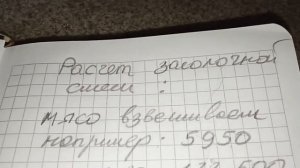 Расчет засолочной
смеси :
мясо взвешиваем
например: 5950